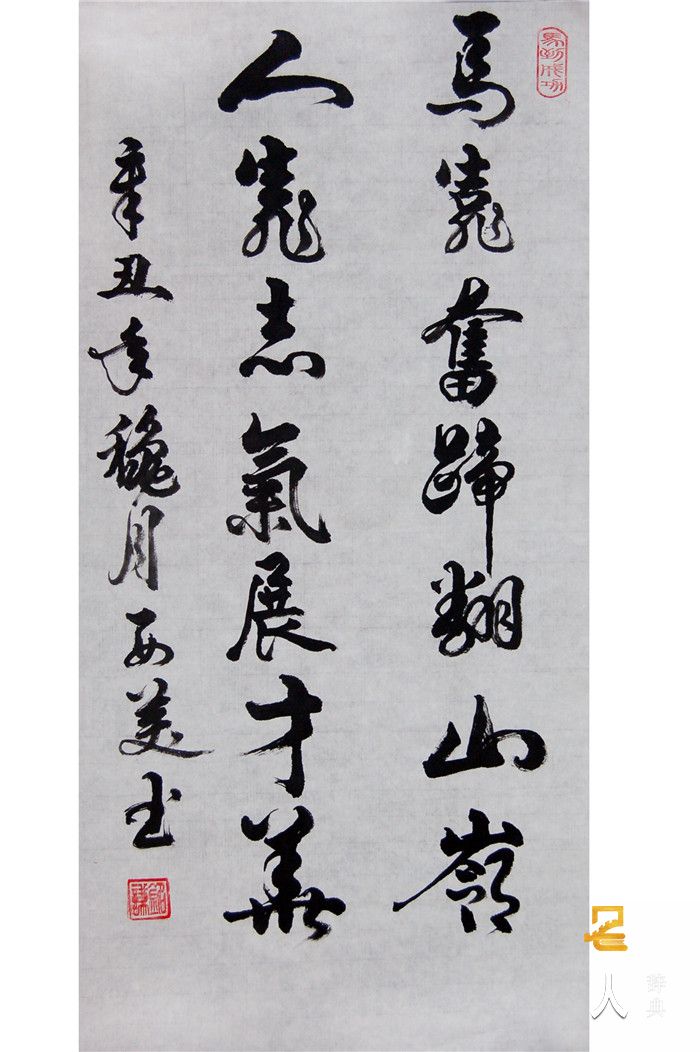 馬到成功
馬奮蹄翻山嶺
人志氣展才華
辛丑年穐月美书
名人
辞典